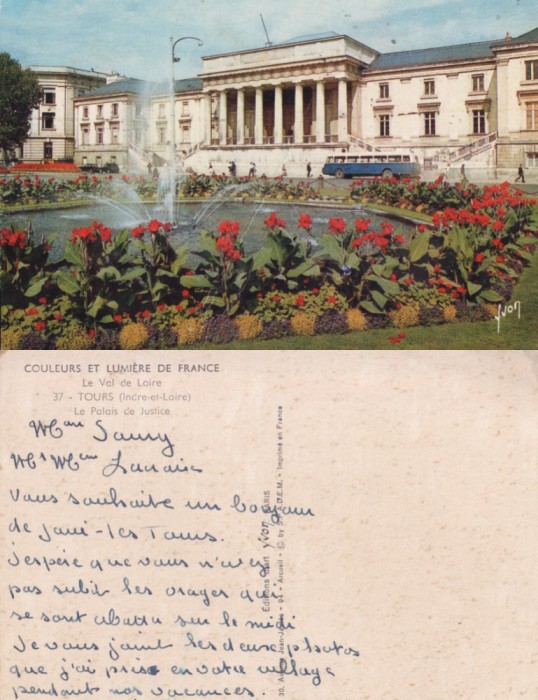 yvon
COULEURS ET LUMIÈRE DE FRANCE
Le Val de Loire
37 - TOURS (Indre-et-Loire)
Le Palais de Justice
Mme
Mr Mme
Vous souhaite un bonjour
de Joué-les Tours.
J'espère que vous n'avez
pas subit les orages qui
se sont abattu sur le midi
Je vous joint les deux photos
que j'ai prise en votre village
pendant nos vacances.
Editions d'art yvon PARIS
Imprimé en France